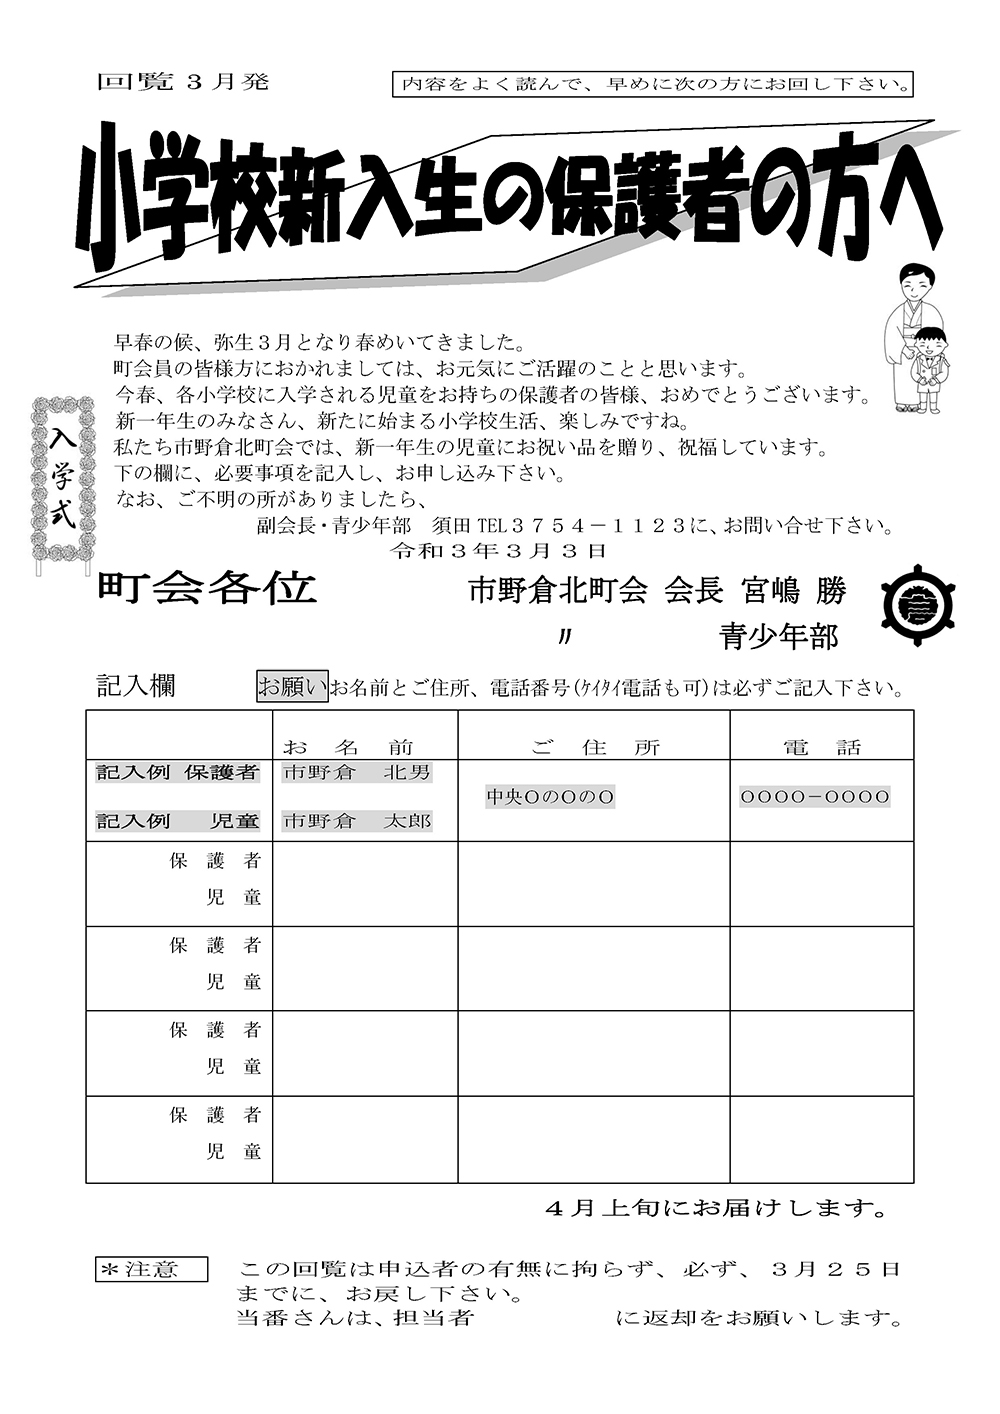 回覧３月発
内容をよく読んで、早めに次の方にお回し下さい。
小学校新入生の保護者の方へ
早春の候、弥生３月となり春めいてきました。
町会員の皆様方におかれましては、お元気にご活躍のことと思います。
今春、各小学校に入学される児童をお持ちの保護者の皆様、おめでとうございます。
新一年生のみなさん、新たに始まる小学校生活、楽しみですね。
私たち市野倉北町会では、新一年生の児童にお祝い品を贈り、祝福しています。
下の欄に、必要事項を記入し、お申し込み下さい。
なお、ご不明の所がありましたら、
副会長・青少年部　須田 TEL３７５４－１１２３に、お問い合せ下さい。
入学式
令和３年３月３日
町会各位
市野倉北町会 会長 宮嶋 勝
〃　青少年部
記入欄
お願いお名前とご住所、電話番号（ｹｲﾀｲ電話も可）は必ずご記入下さい。
お　名　前　ご　住　所　電　話
記入例 保護者　市野倉　北男
中央ＯのＯのＯ　ＯＯＯＯ－ＯＯＯＯ
記入例　児童　市野倉　太郎
保　護　者
児　童
保　護　者
児　童
保　護　者
児　童
保　護　者
児　童
４月上旬にお届けします。
＊注意
この回覧は申込者の有無に拘らず、必ず、３月２５日
までに、お戻し下さい。
当番さんは、担当者　　　　　に返却をお願いします。